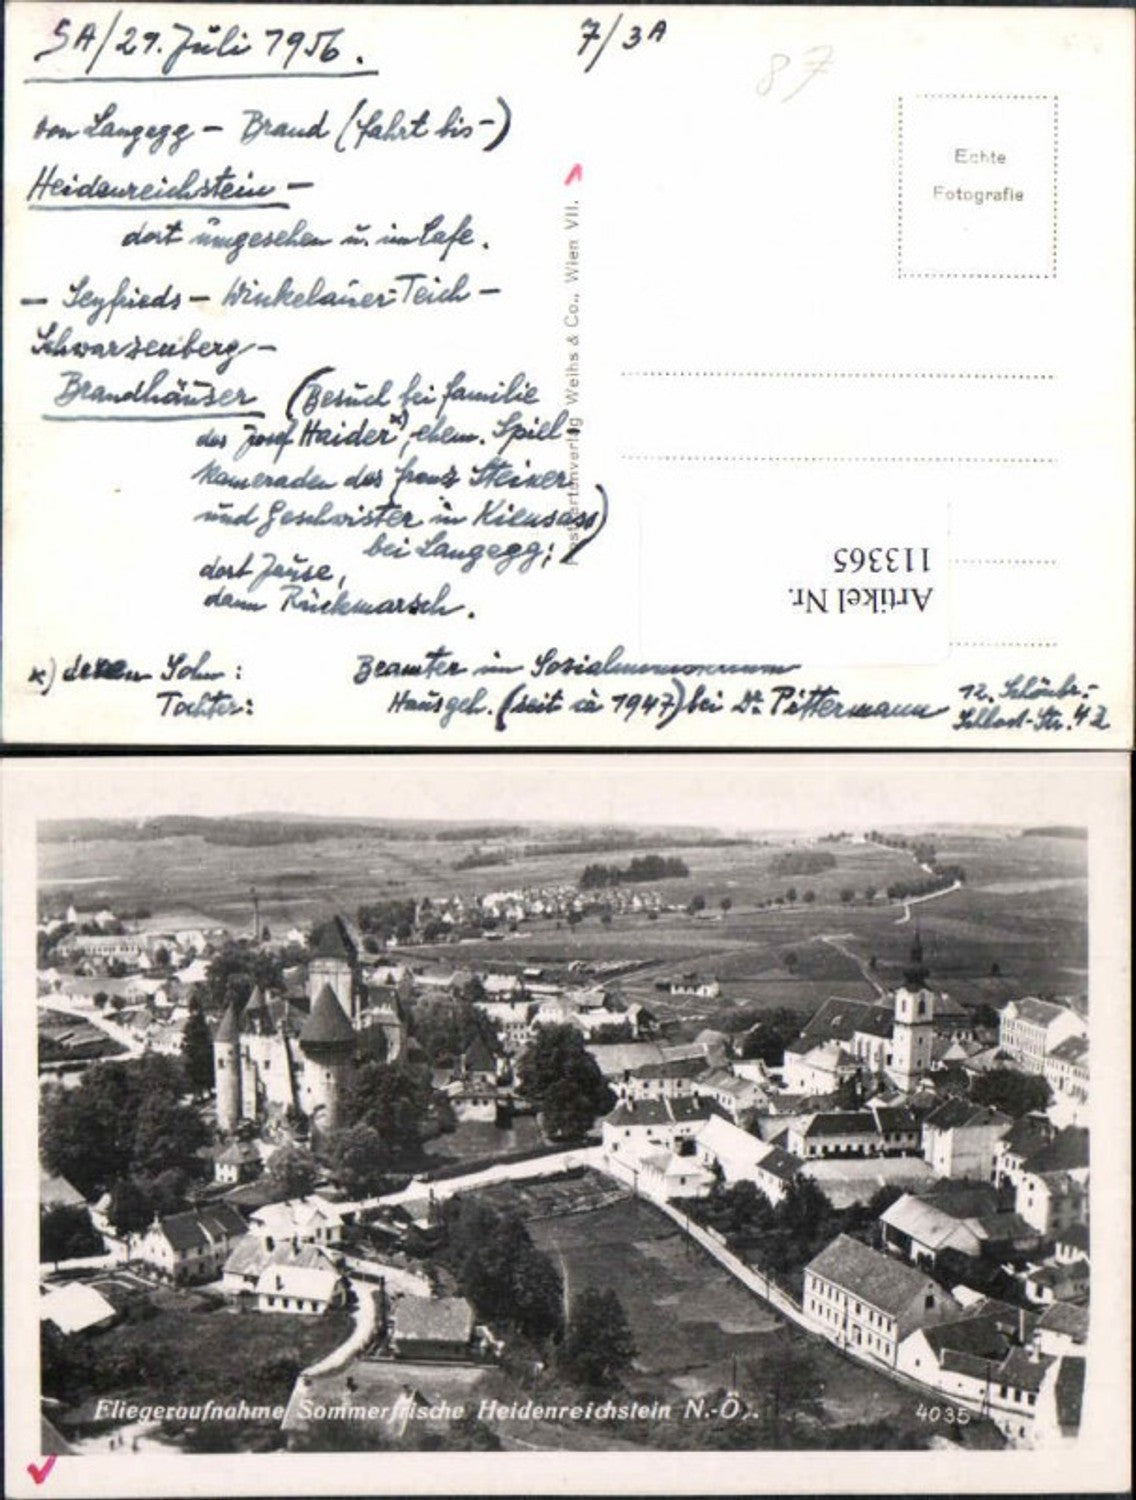 SA/29. Juli 1956.
7/3A
87
von Langegg – Brand (fahrt bis –)
Heidenreichstein –
dort umgesehen u. im Cafe.
– Seyfrieds – Winkelauer-Teich –
Schwarzenberg –
Brandhäuser (Besuch bei familie
des Josef Haider x), ehem. Spiel
kameraden des franz Steiner
und Geschwister in Kiensass)
bei Langegg;
dort Jause,
dann Rückmarsch.
x) deren Sohn: Beamter im
Tochter: Hausgeh. (seit ca 1947) bei Dr. Pittermann
12. Schönbr.-
Schloß-Str. 42
Postkartenverlag Weihs & Co., Wien VII.
Echte
Fotografie
Artikel Nr.
113365
Fliegeraufnahme Sommerfrische Heidenreichstein N.-Ö.
4035